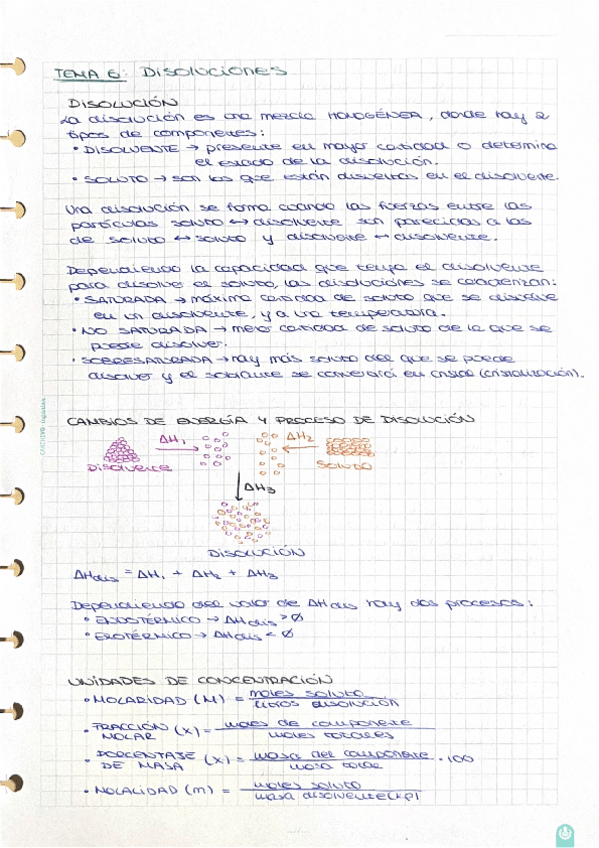 TEMA 6: DISOLUCIONES
DISOLUCIÓN
La disolución es una mezcla HOMOGÉNEA, donde hay 2
tipos de componentes:
• DISOLVENTE → presente en mayor cantidad o determina
el estado de la disolución.
• SOLUTO → son los que están disueltos en el disolvente.
Una disolución se forma cuando las fuerzas entre las
partículas soluto ↔ disolvente son parecidas a las
de soluto ↔ soluto y disolvente ↔ disolvente.
Dependiendo la capacidad que tenga el disolvente
para disolver el soluto, las disoluciones se caracterizan:
• SATURADA → máxima cantidad de soluto que se disuelve
en un disolvente, y a una temperatura.
• NO SATURADA → menor cantidad de soluto de la que se
puede disolver.
• SOBRESATURADA → hay más soluto del que se puede
disolver y el sobrante se convertirá en cristal (cristalización).
CAMBIOS DE ENERGÍA Y PROCESO DE DISOLUCIÓN
ΔH₁ ΔH₂
Disolvente Soluto
ΔH₃
DISOLUCIÓN
ΔHdis = ΔH₁ + ΔH₂ + ΔH₃
Dependiendo del valor de ΔHdis hay dos procesos:
• ENDOTÉRMICO → ΔHdis > 0
• EXOTÉRMICO → ΔHdis < 0
UNIDADES DE CONCENTRACIÓN
• MOLARIDAD (M) = moles soluto / litros disolución
• FRACCIÓN MOLAR (X) = moles de componente / moles totales
• PORCENTAJE DE MASA (X) = masa del componente / masa total · 100
• MOLALIDAD (m) = moles soluto / masa disolvente (kg)